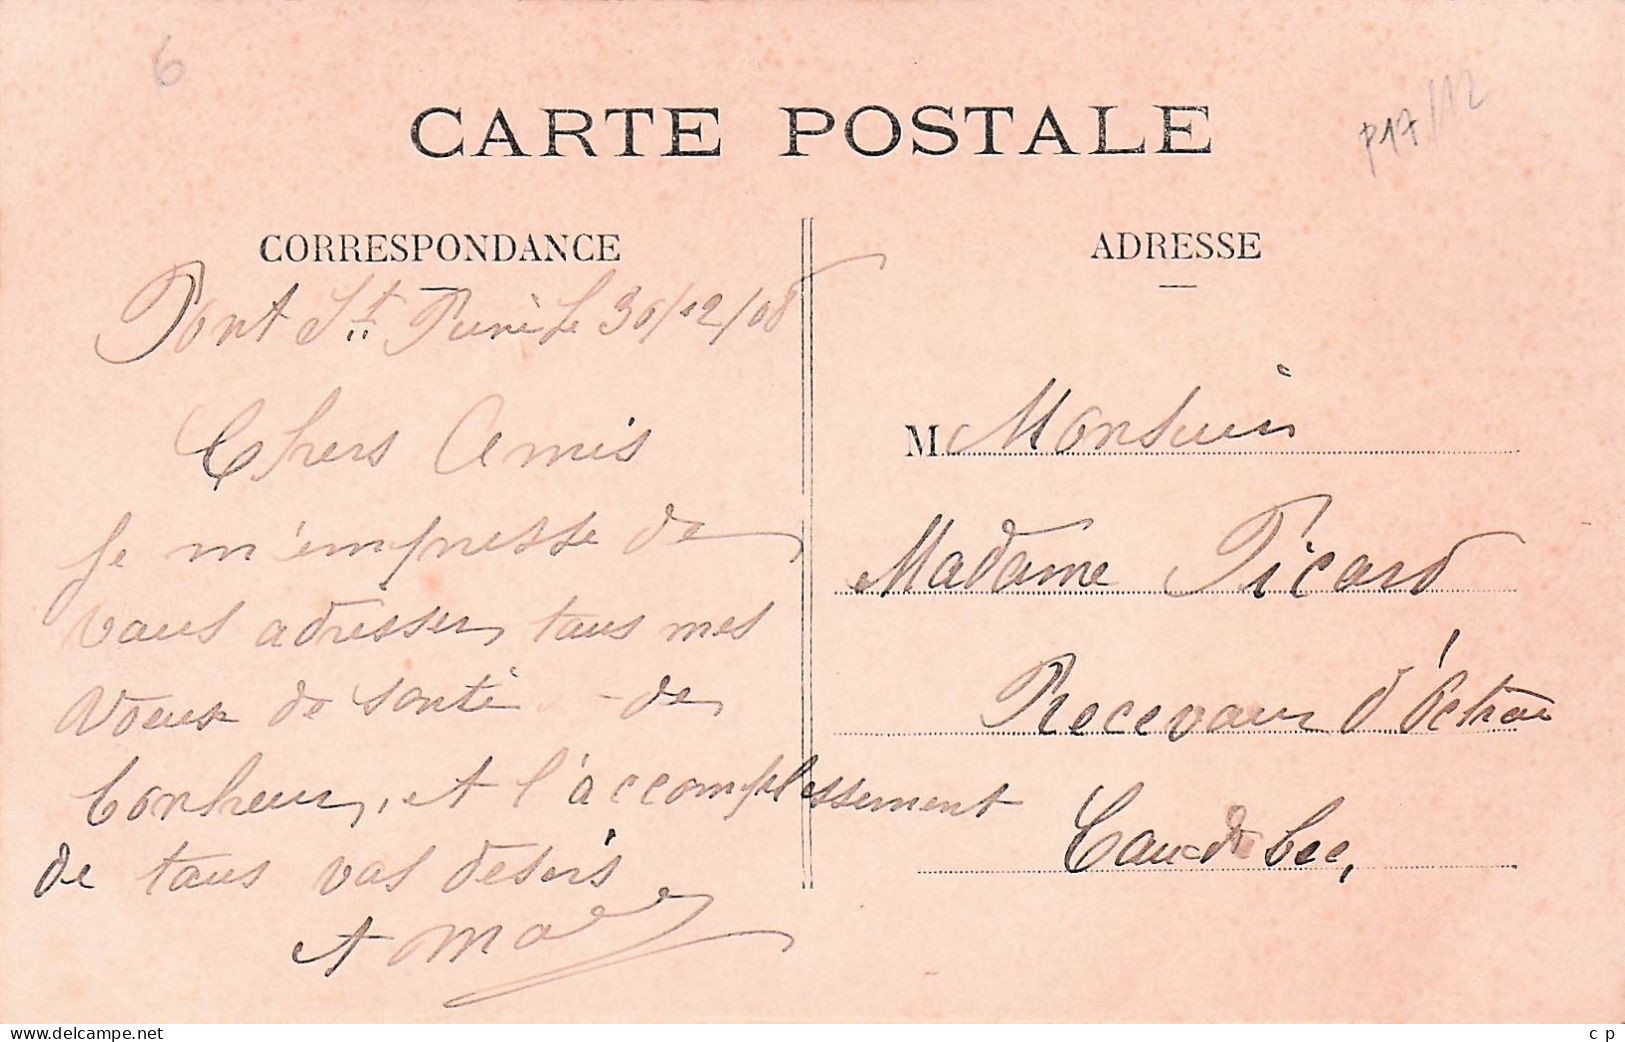 6
P17/12
CARTE POSTALE
CORRESPONDANCE
Pont St. Pierre Le 30/12/08
Chers Amis
Je m'empresse de
vous adresser tous mes
voeux de santé - de
bonheur, et l'accomplissement
de tous vos désirs
ADRESSE
M Monsieur
Madame Picard
Receveur d'Octroi
Caudebec,
www.delcampe.net
c p